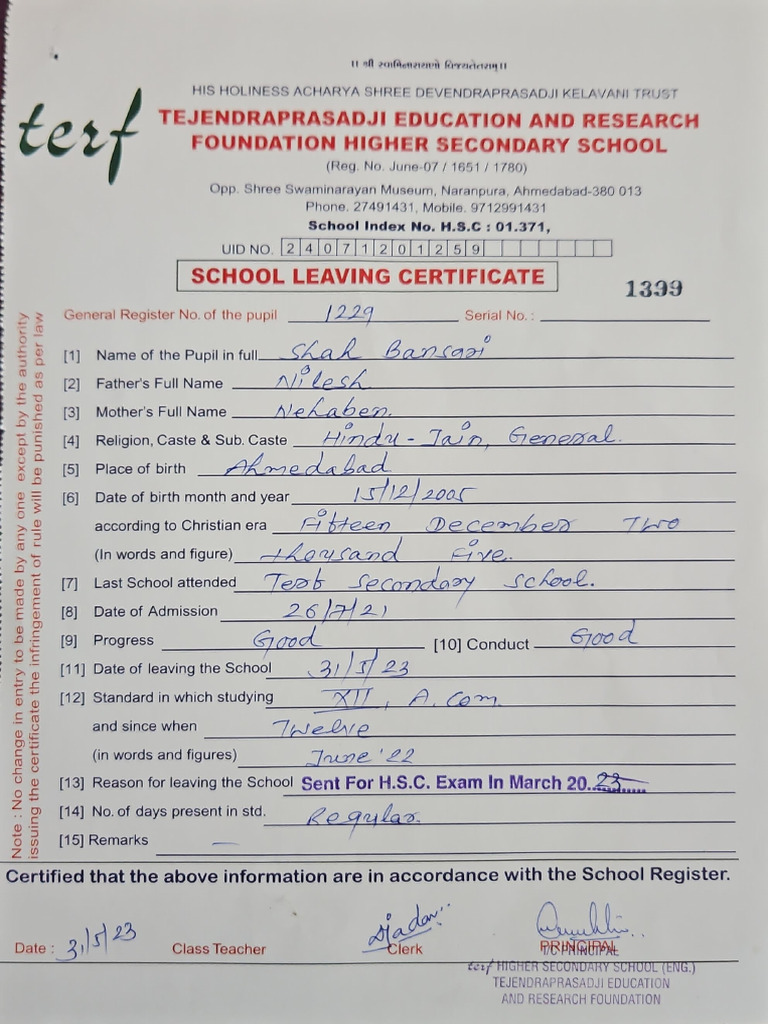 ॥ શ્રી સ્વામિનારાયણો વિજયતેતરામ્ ॥
HIS HOLINESS ACHARYA SHREE DEVENDRAPRASADJI KELAVANI TRUST
terf
TEJENDRAPRASADJI EDUCATION AND RESEARCH
FOUNDATION HIGHER SECONDARY SCHOOL
(Reg. No. June-07 / 1651 / 1780)
Opp. Shree Swaminarayan Museum, Naranpura, Ahmedabad-380 013
Phone. 27491431, Mobile. 9712991431
School Index No. H.S.C : 01.371,
UID NO. 24071201259
SCHOOL LEAVING CERTIFICATE
1399
General Register No. of the pupil 1229 Serial No. :
[1] Name of the Pupil in full Shah Bansari
[2] Father's Full Name Nilesh
[3] Mother's Full Name Nehaben.
[4] Religion, Caste & Sub. Caste Hindu - Jain, General.
[5] Place of birth Ahmedabad
[6] Date of birth month and year 15/12/2005
according to Christian era Fifteen December Two
(In words and figure) thousand Five.
[7] Last School attended Terf Secondary School.
[8] Date of Admission 26/7/21
[9] Progress Good [10] Conduct Good
[11] Date of leaving the School 31/5/23
[12] Standard in which studying XII, A. Com.
and since when Twelve
(in words and figures) June '22
[13] Reason for leaving the School Sent For H.S.C. Exam In March 20..23
[14] No. of days present in std. Regular.
[15] Remarks —
Note : No change in entry to be made by any one except by the authority
issuing the certificate the infringement of rule will be punished as per law
Certified that the above information are in accordance with the School Register.
Date : 31/5/23 Class Teacher Clerk PRINCIPAL
I/C PRINCIPAL
terf HIGHER SECONDARY SCHOOL (ENG.)
TEJENDRAPRASADJI EDUCATION
AND RESEARCH FOUNDATION